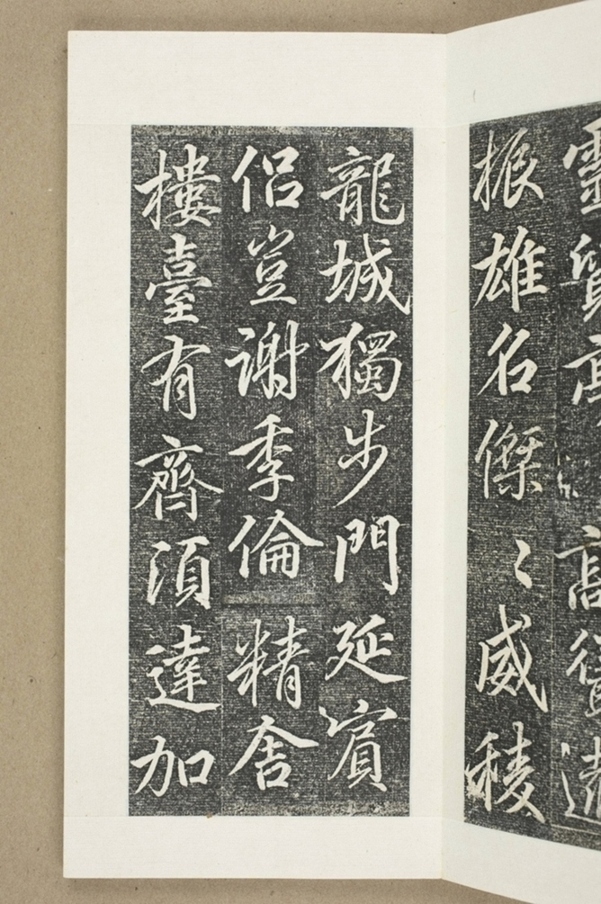 靈質 高
振雄名傑〻威稜
龍城獨步門延賓
侶豈謝季倫精舍
樓臺有齊須達加